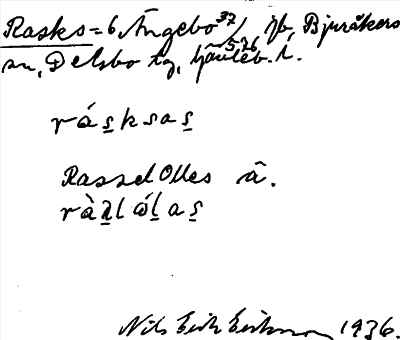 Rasks = 6 Ängebo 3⁷/₅₂₆ gb, Bjuråkers
sn, Delsbo tg, Gävleb. l.
rásksas
Rassel Olles â.
ràʂlólas
Nils Erik Eriksson 1936.